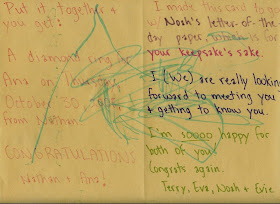 Put it together +
you get:
A diamond ring
Ana on
October 30,
from Nathan
CONGRATULATIONS
Nathan + Ana!
I made this card to go
w/ Noah's letter-of-the
day paper, which is for
your keepsake's sake.
I (We) are really looking
forward to meeting you
+ getting to know you.
I'm soooo happy for
both of you!
Congrats again.
Terry, Eva, Noah + Evie